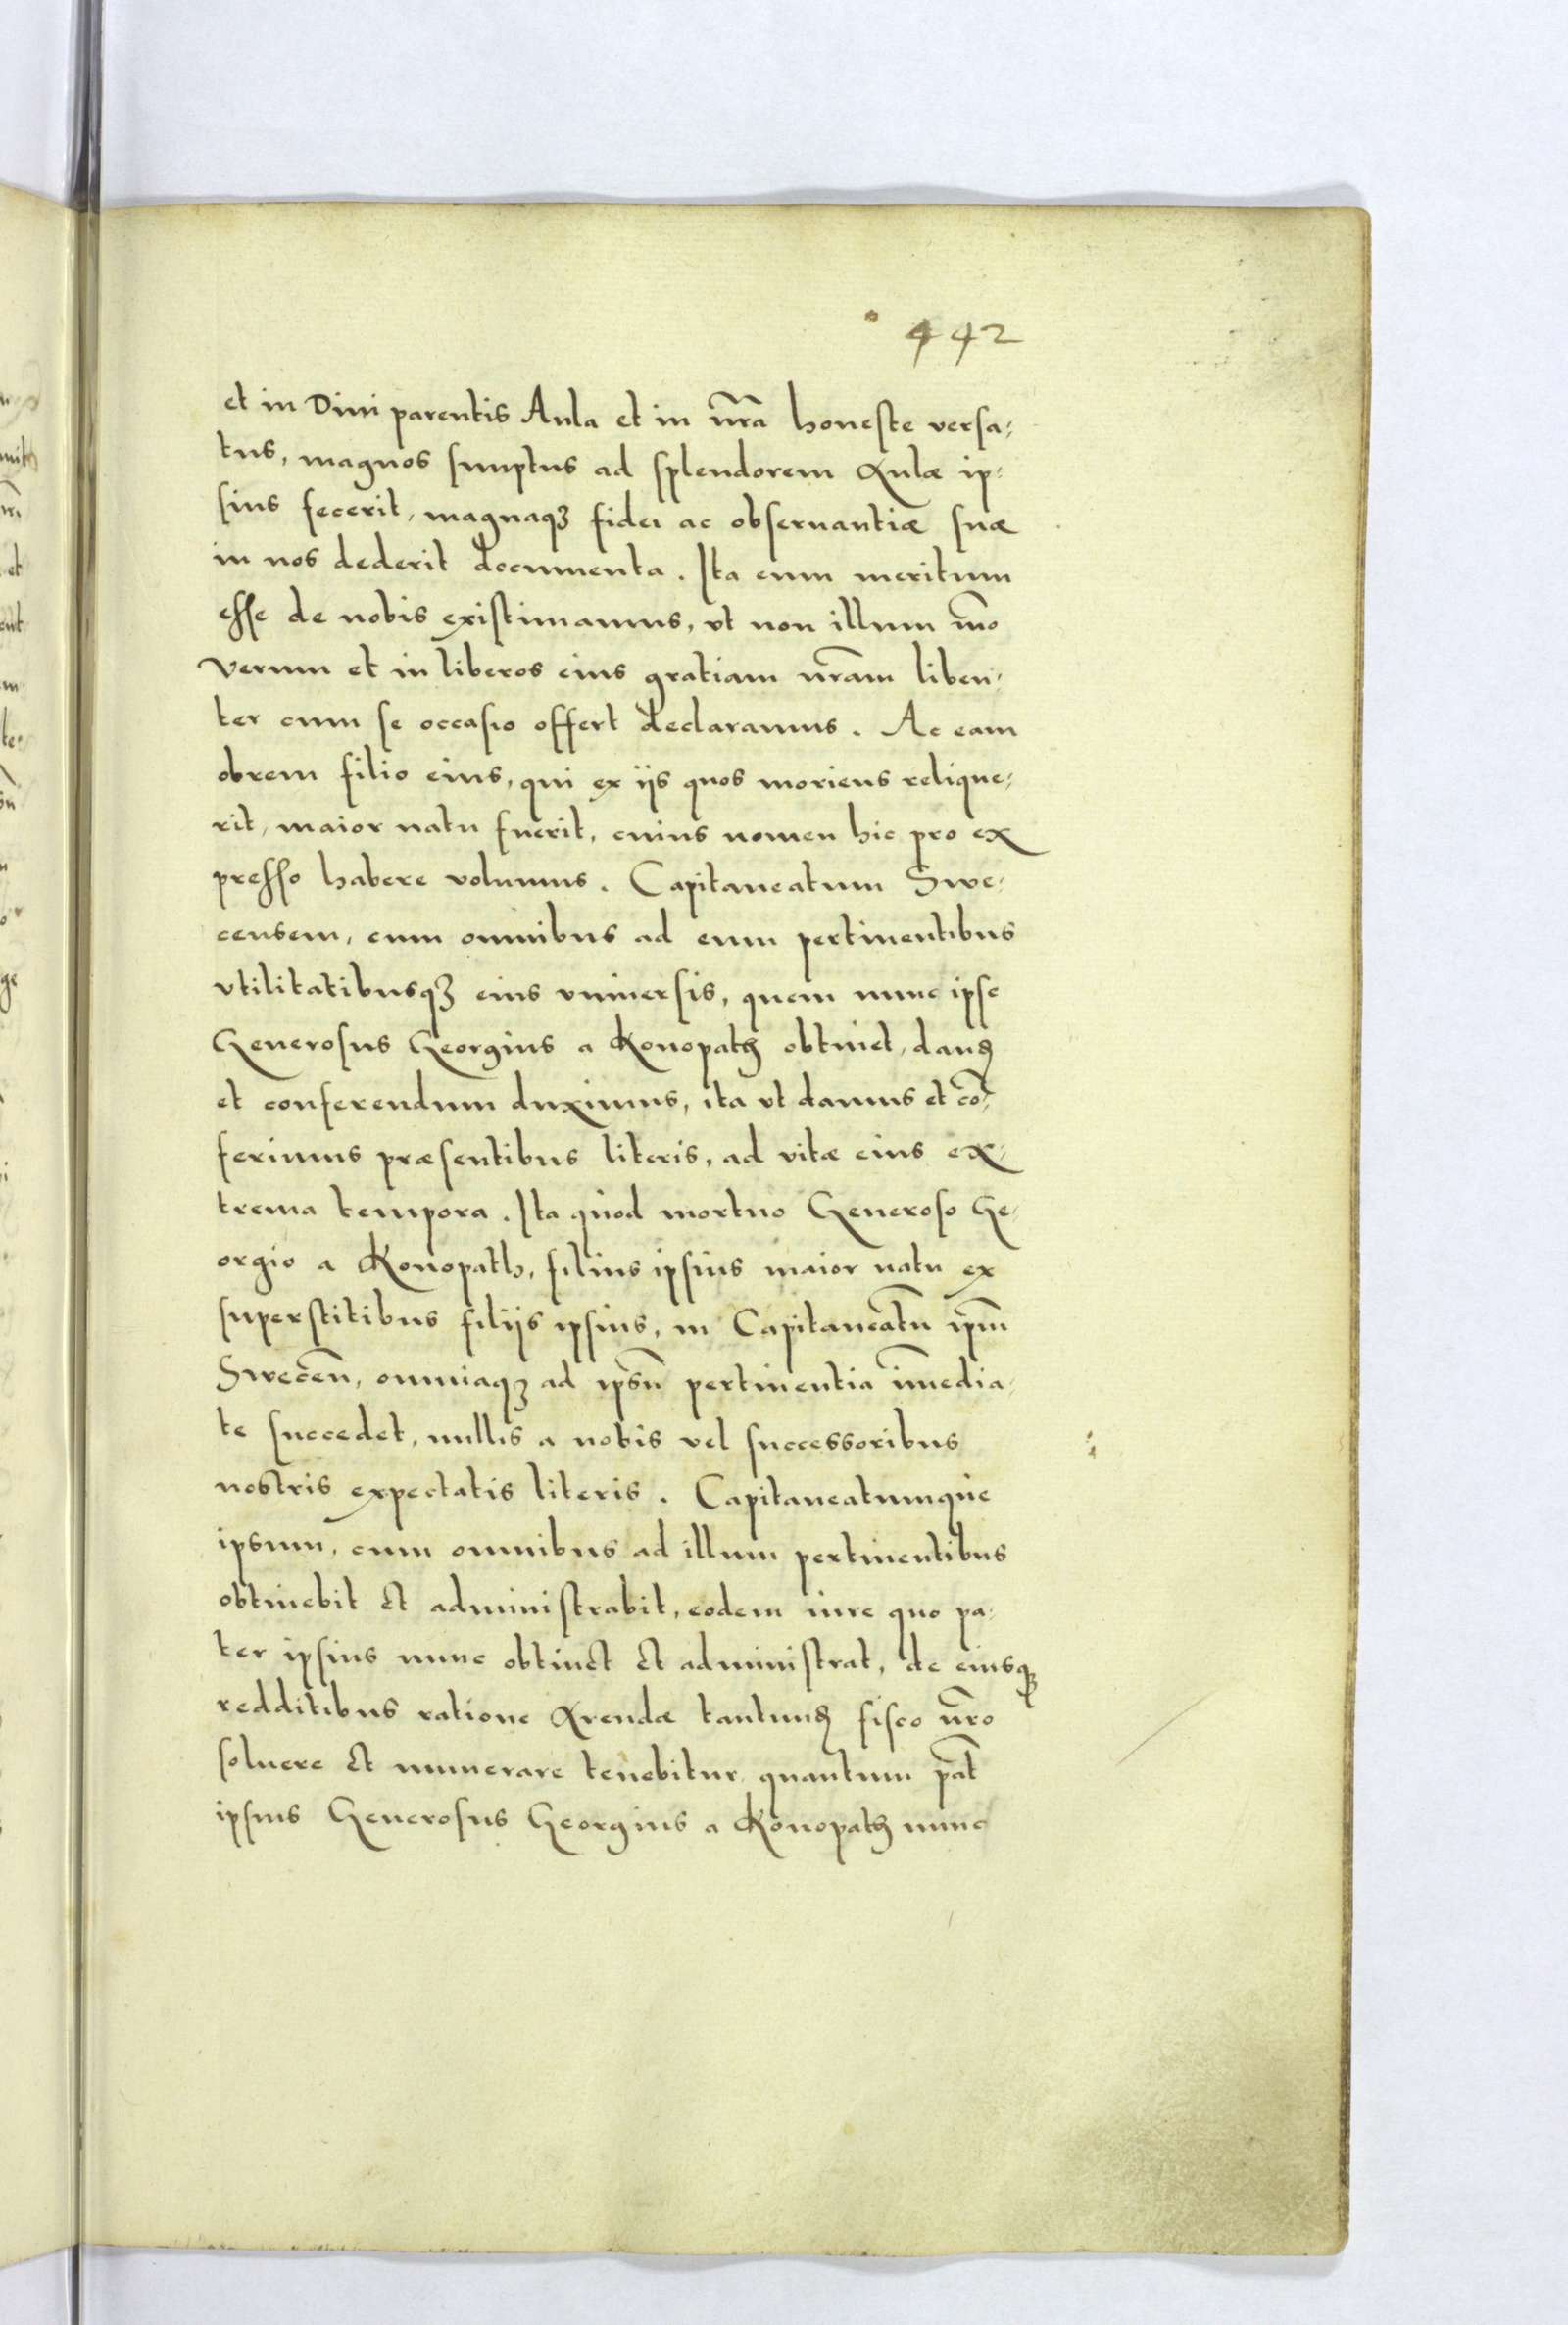 442
et in Diui parentis Aula et in nr̃a honeste versa⸗
tus, magnos sumptus ad splendorem Aulæ ip⸗
sius fecerit, magnaqꝫ fidei ac obseruantiæ suæ
in nos dederit documenta. Ita eum meritum
esse de nobis existimamus, vt non illum mõ
verum et in liberos eius gratiam nr̃am liben⸗
ter cum se occasio offert declaramus. Ac eam
obrem filio eius, qui ex ijs quos moriens relique⸗
rit, maior natu fuerit, cuius nomen hic pro ex
presso habere volumus. Capitaneatum Swe⸗
censem, cum omnibus ad eum pertinentibus
vtilitatibusqꝫ eius vniuersis, quem nunc ipse
Generosus Georgius a Konopath obtinet, danḑ
et conferendum duximus, ita vt damus et cõ⸗
ferimus præsentibus literis, ad vitæ eius ex⸗
trema tempora. Ita quod mortuo Generoso Ge⸗
orgio a Konopath, filius ipsius maior natu ex
superstitibus filijs ipsius, in Capitaneatũ ip̃m
Swecen̄, omniaqꝫ ad ipsũ pertinentia im̃edia⸗
te succedet, nullis a nobis vel successoribus
nostris expectatis literis. Capitaneatumque
ipsum, cum omnibus ad illum pertinentibus
obtinebit et administrabit, eodem iure quo pa⸗
ter ipsius nunc obtinet et administrat, de eiusqꝫ
redditibus ratione Arendæ tantunḑ fisco nr̃o
soluere et numerare tenebitur quantum pat̃
ipsius Generosus Georgius a Konopath nunc